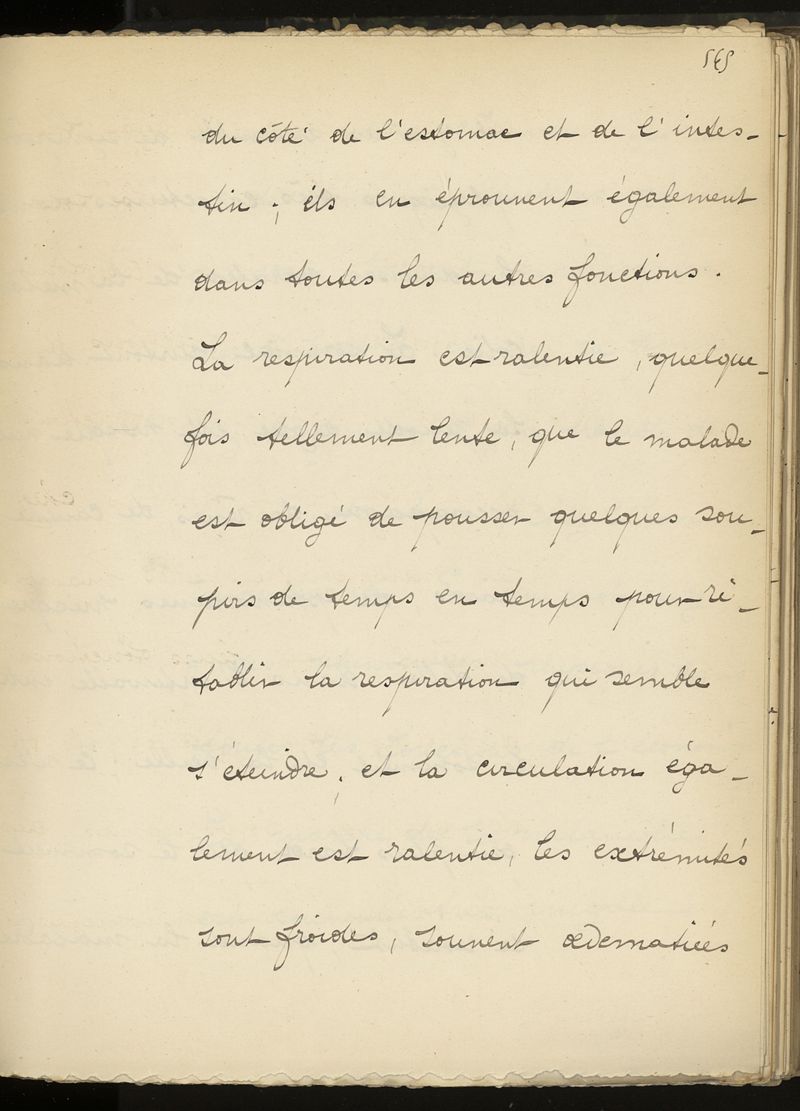 565
du côté de l'estomac et de l'intes-
tin ; ils en éprouvent également
dans toutes les autres fonctions.
La respiration est ralentie, quelque-
fois tellement lente, que le malade
est obligé de pousser quelques sou-
pirs de temps en temps pour ré-
tablir la respiration qui semble
s'éteindre ; et la circulation éga-
lement est ralentie, les extrémités
sont froides, souvent œdematiées